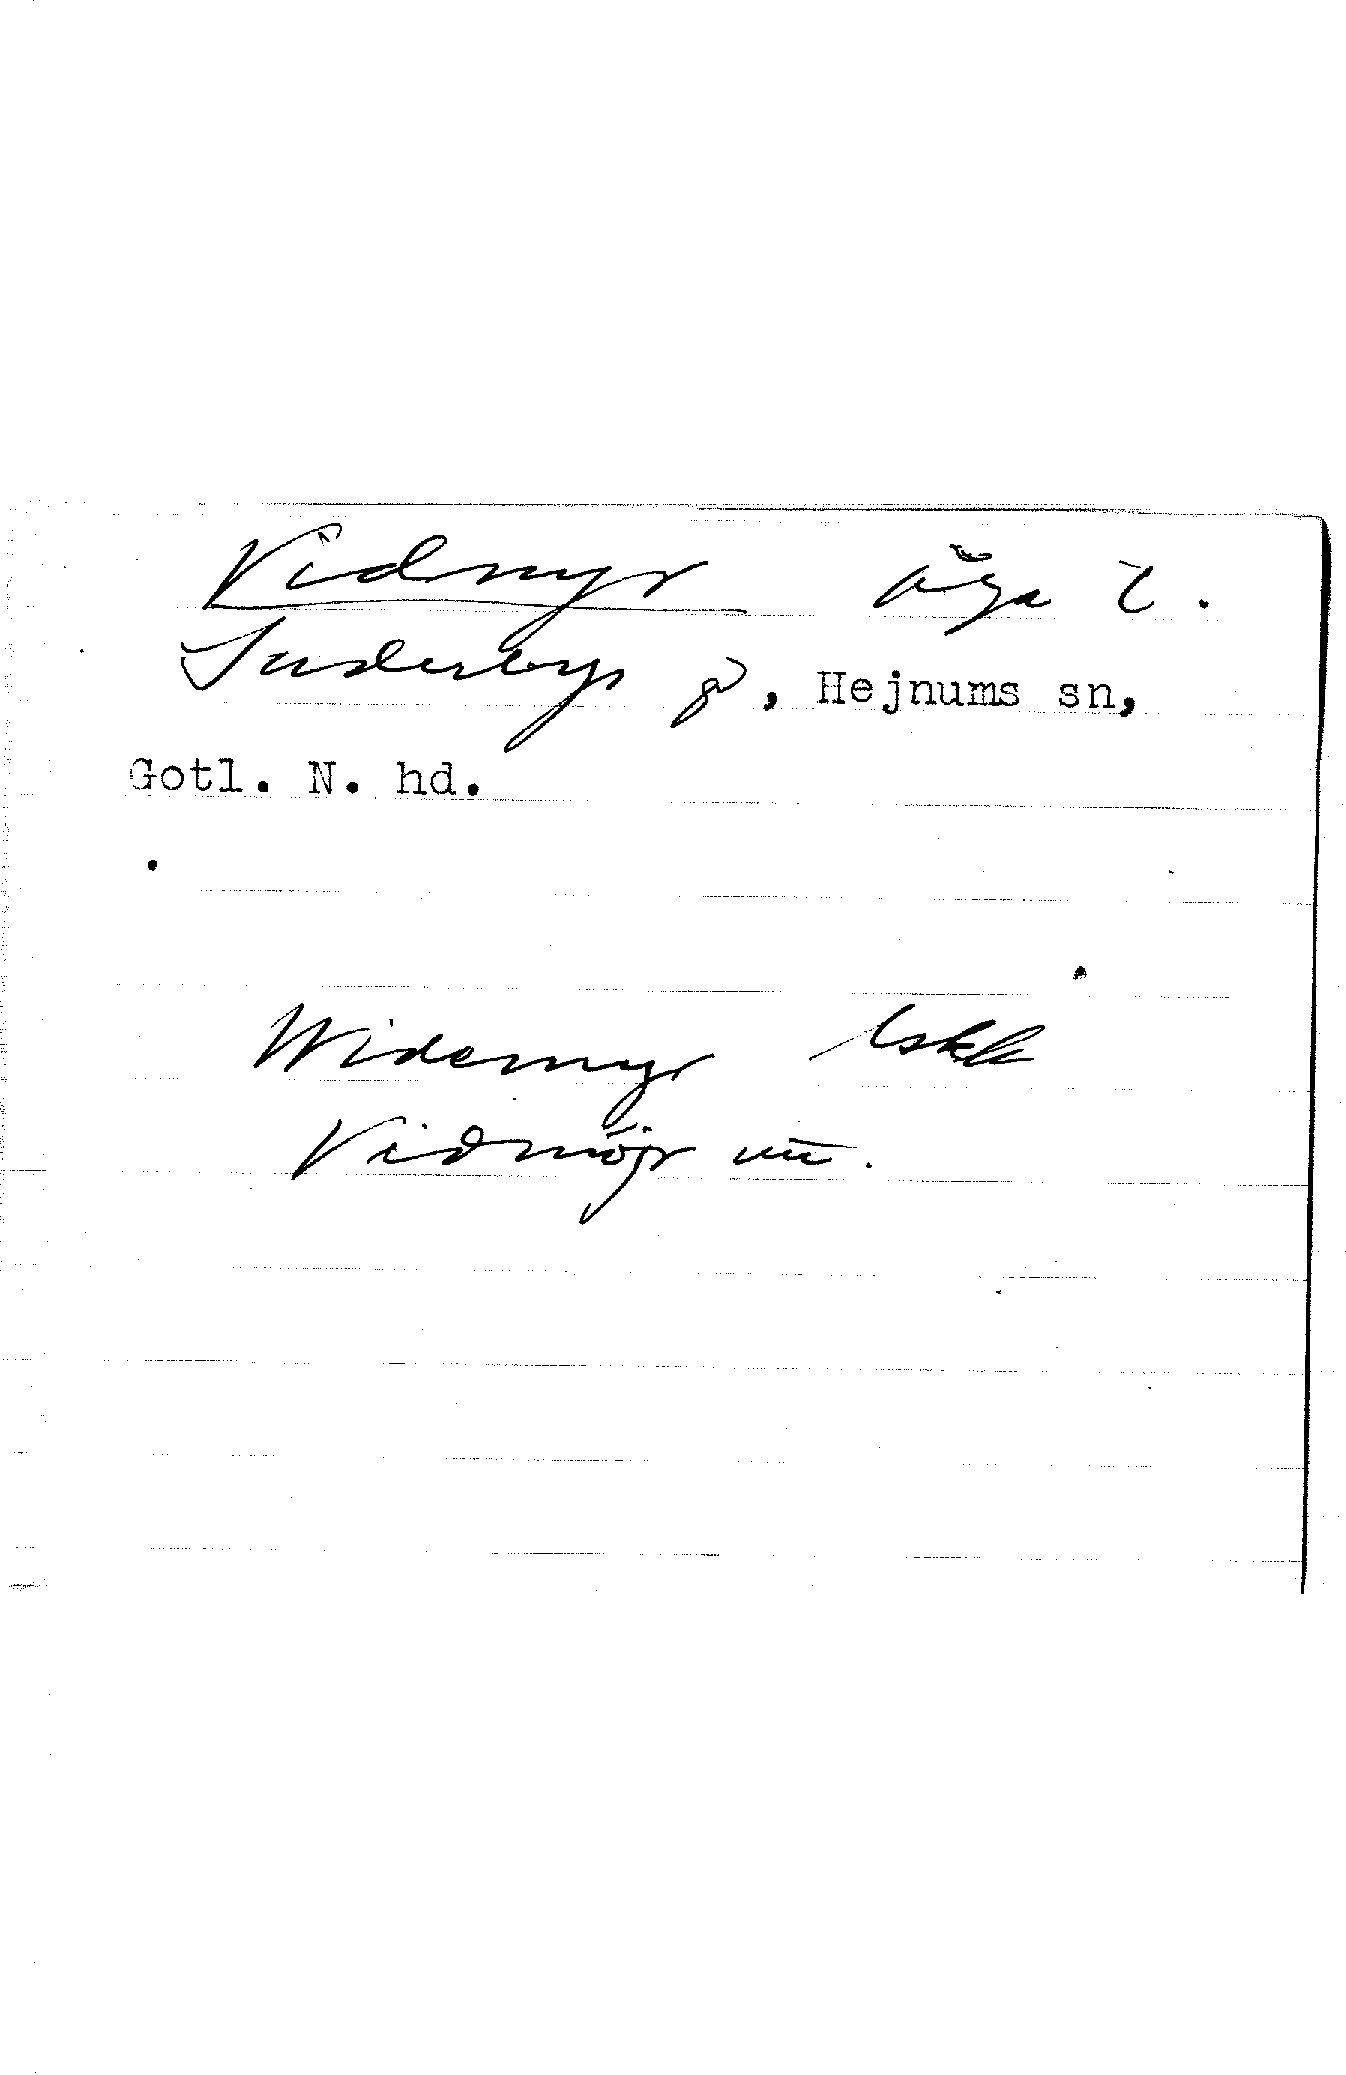 Vidmyr äga t.
Suderbys gd, Hejnums sn,
Gotl. N. hd.
Widemyr lskk
Vidmöjr uu.